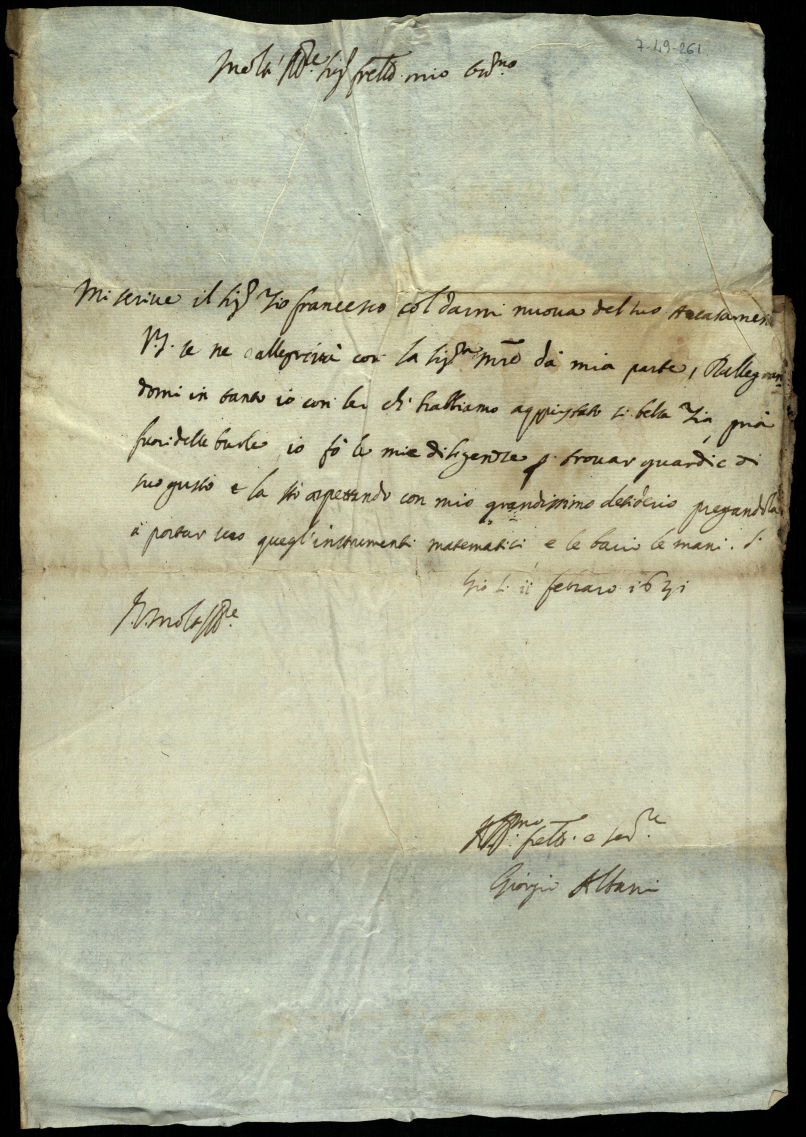 7-49-261
Molt' Ill.re Sig.r fratello mio Oss.mo
Mi scrive il Sig.r Zio francesco col darmi nuova del suo Accasamen
V.S. se ne con la Sig.ra M.re dà mia parte, Rallegran
domi in tanto io con lei ch' habbiamo acquistato si bella Zia, già
fuori delle burle io fò le mie diligenze p. trovar guardie di
suo gusto e la stò aspettando con mio grandissimo desiderio pregandola
à portar seco quegl'instrumenti matematici e le bacio le mani. di
li 11 febraro 1631
V.S. molto Ill.re
Aff.mo fratello e ser.re
Giorgio Albani